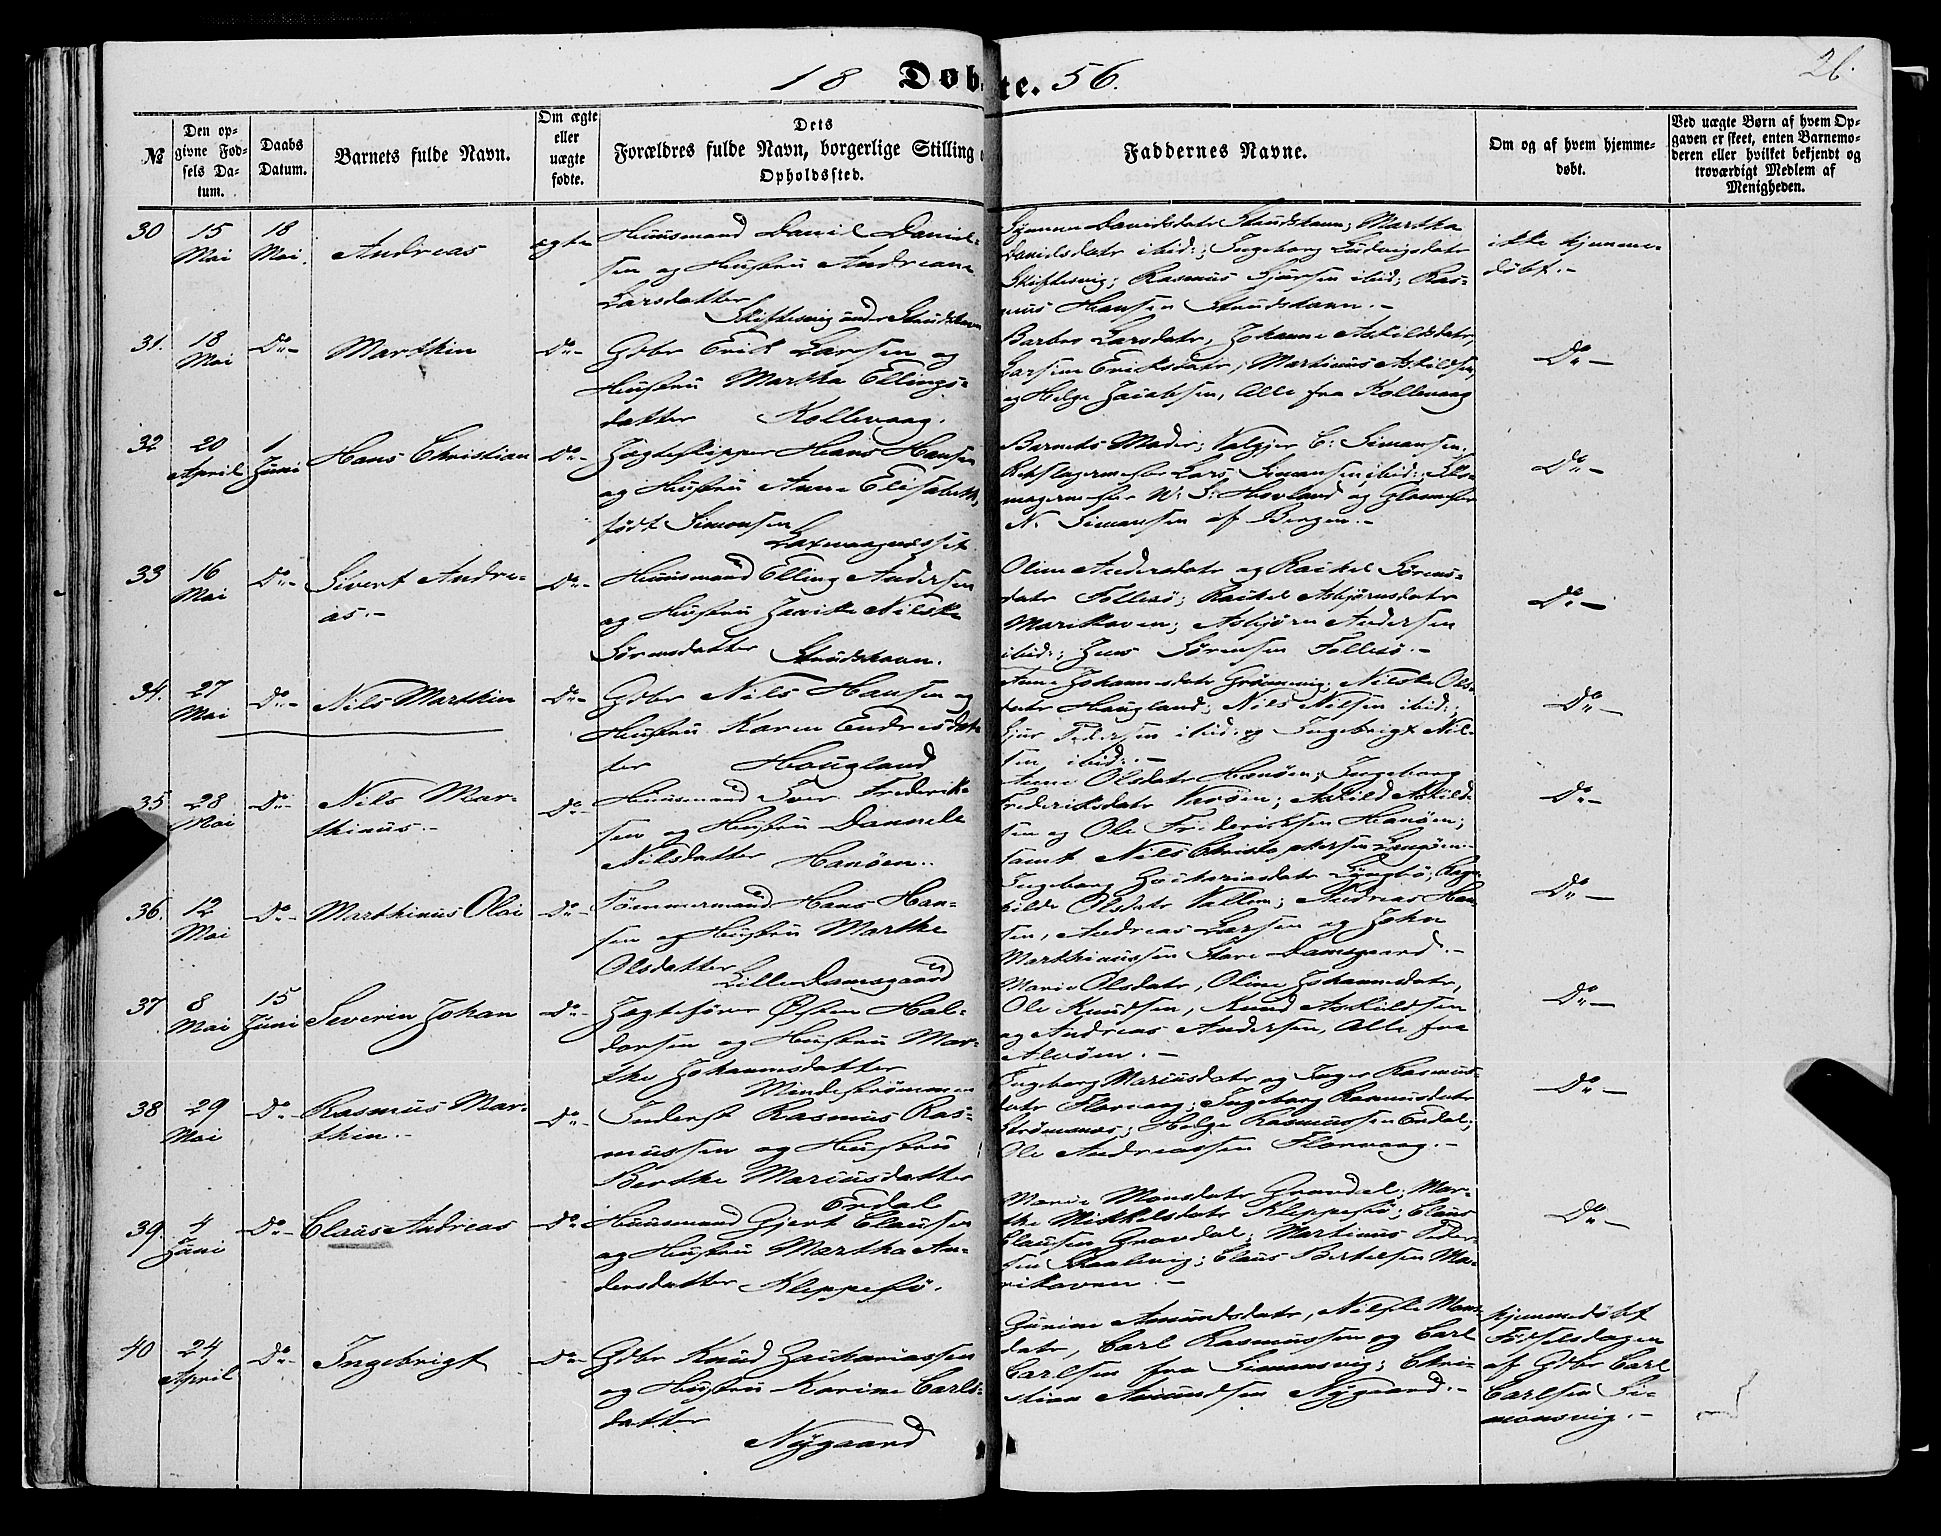 18 Døbte. 56.
26.
№
Den opgivne Fødsels Datum.
Daabs Datum.
Barnets fulde Navn.
Om ægte eller uægte fødte.
Dets Forældres fulde Navn, borgerlige Stilling
Opholdssted.
Faddernes Navne.
Om og af hvem hjemmedøbt.
Ved uægte Børn af hvem Opgaven er skeet, enten Barnemoderen eller hvilket bekjendt og troværdigt Medlem af Menigheden.
30
15 Mai
18 Mai.
Andreas
ægte
Huusmand Daniel Daniel-
sen og Hustru Andreane
Larsdatter
Skiftesvig under Strudshavn
Danielsdatr Strudshavn; Martha
Danielsdatr ibid:; Ingeborg Ludvigsdatr
Skiftesvig; Rasmus Gjørsen ibid; Ras-
mus Hansen Strudshavn.-
ikke hjemme-
døbt.-
31.
18 Mai
Do-
Marthin
Do-
Gdbr Erik Larsen og
Hustru Martha Ellings-
datter Kollevaag.
Barbro Larsdatr, Johanne Askildsdatr,
Larsine Eriksdatr; Martinus Askildsen,
og Helge Jacobsen, Alle fra Kollevaag
Do-
32
20 April
1 Juni
Hans Christian
Do-
Jagteskipper Hans Hansen
og Hustru Anne Elisabeth,
født Simonsen
Laxevaagnæsset
Barnets Moder; Valgjer C: Simonsen;
Lars Simonsen ibid:;
W: S: Hovland og
N. Simonsen af Bergen.-
Do-
33
16 Mai
Do-
Sivert Andre-
as.-
Do-
Huusmand Elling Andersen
og Hustru Nilske
Sørensdatter Strudshavn.
Oline Andersdatr og Rachel Sørens-
datr Follesø; Rachel Asbjørnsdatr
Marikoven; Asbjørn Andersen
ibid:; Jens Sørensen Follesø.-
Do-
34.
27 Mai
Do-
Nils Marthin
Do-
Gdbr Nils Hansen og
Hustru Karen Endresdat-
ter Hougland
Anne Johannesdatr; Nilske Ols-
datr Haugland; Nils Nilsen ibid:;
Pedersen ibid: og Ingebrigt Nil-
sen ibid:.-
Do-
35
28 Mai
Do-
Nils Mar-
thinus.-
Do-
Huusmand Iver Frederik-
sen og Hustru
Nilsdatter Hanøen.
Anne Olsdatr Hanøen; Ingeborg
Frederiksdatr; Askild Askild-
sen og Ole Fredericksen Hanøen;
samt Nils Christophersen
Do-
36.
12 Mai
Do-
Marthinus Olai
Do-
Tømmermand Hans Han-
sen og Hustru Marthe
Olsdatter
Lille Damsgaard
Ingeborg Zachariasdatr; Rag-
hilde Olsdatr; Andreas Han-
sen, Andreas Larsen og John
Marthinussen Store-Damsgaard.-
Do-
37
8 Mai
15 Juni
Severin Johan
Do-
Jagtefører Østen Hal-
dorsen og Hustru Mar-
the Johannesdatter
Mindeströmmen
Marie Olsdatr, Oline Johannesdatr,
Ole Knudsen, Knud Askildsen
og Andreas Andersen, Alle fra
Alvøen.-
Do-
38
29 Mai
Do-
Rasmus Mar-
thin.-
Do-
Inderst Rasmus Ras-
mussen og Hustru
Berthe Mariusdatter
Erdal
Ingeborg Mariusdatr og Inger Rasmus-
datr Florvaag; Ingeborg Rasmusdatr
Helge Rasmussen Erdal;
Ole Andreassen Florvaag.-
Do-
39.
4 Juni
Do-
Claus Andreas
Do-
Huusmand Gjert Clausen
og Hustru Martha An-
dersdatter Kleppesø.
Marie Monsdatr Gravdal; Mar-
the Mikkelsdatr Kleppesø; Claus
Clausen Gravdal; Martinus Peder-
sen; Claus Bertelsen Ma-
rikoven.-
Do-
40
24 April
Do-
Ingebrigt
Do-
Gdbr Knud Zachariassen
og Hustru Karine Carls-
datter
Nygaard
Amundsdatr, Nilske Mons-
datr, Carl Rasmussen og Carl
Carlsen fra Simonsvig; Chri-
stian Amundsen Nygaard.-
Hjemmedøbt
Fødselsdagen
af Gdbr Carl
Carlsen Si-
monsvig.-